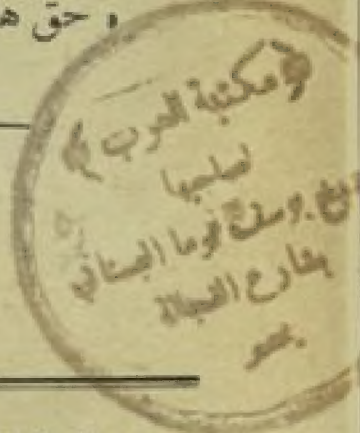 حق
﴿مكتبة العرب﴾
لصاحبها
الشيخ يوسف توما البستاني
بشارع الفجالة
بمصر